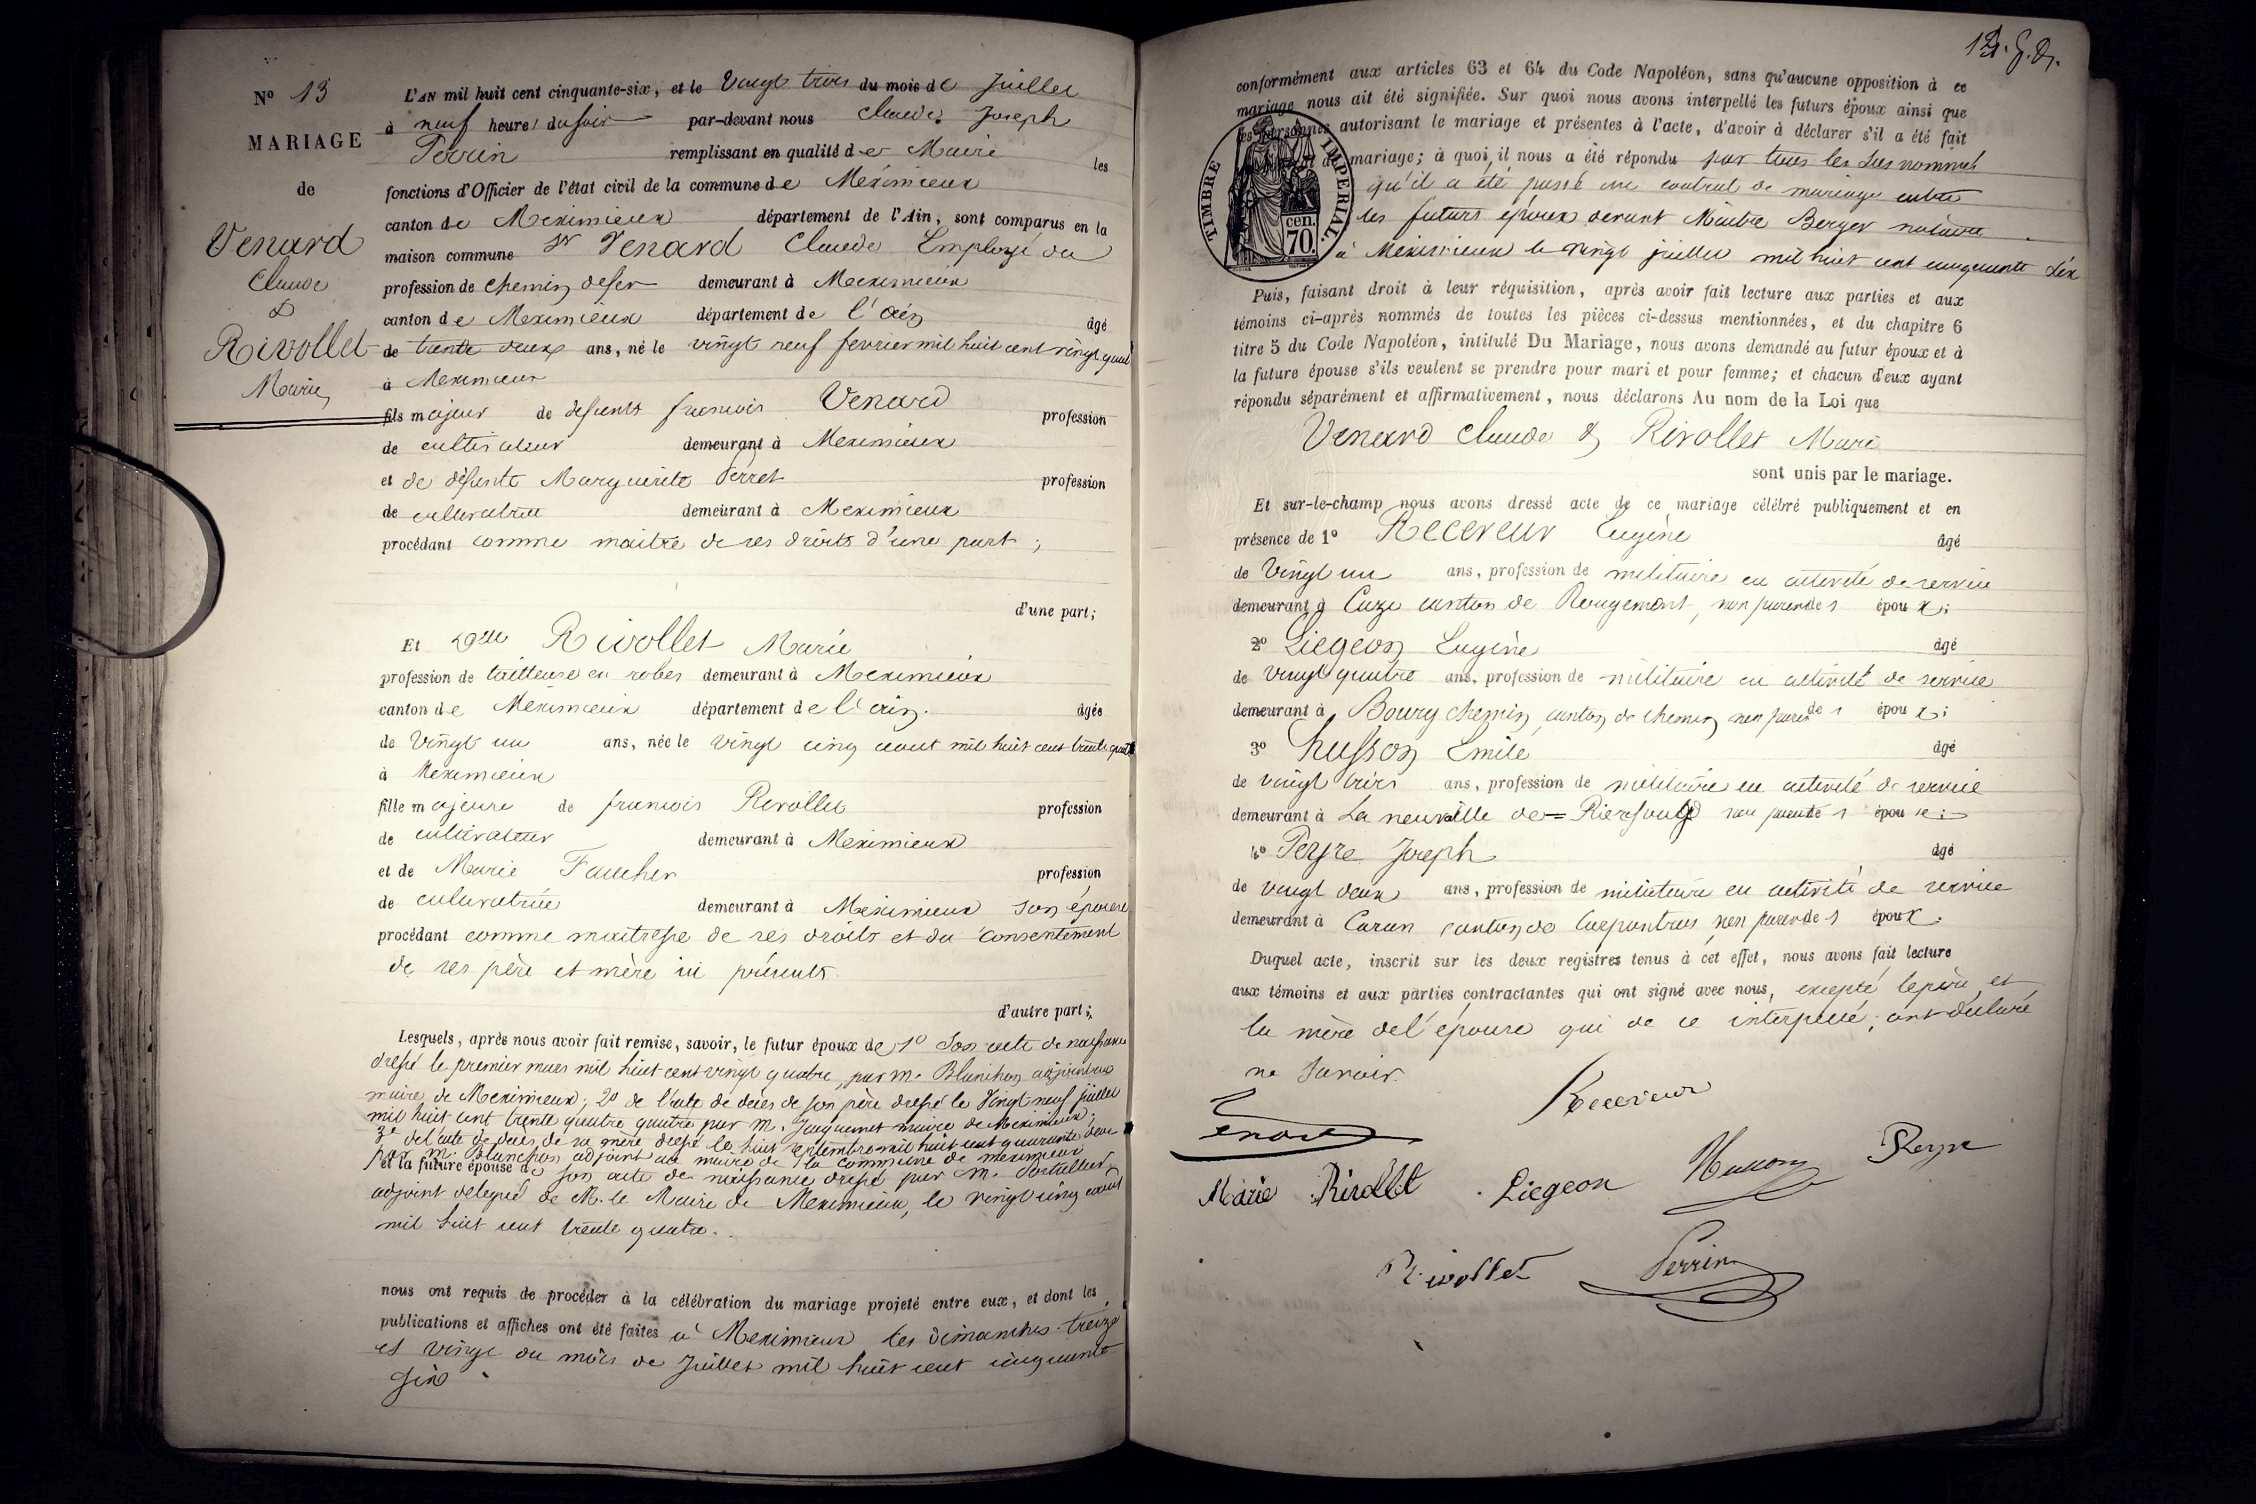 N° 13
MARIAGE
de
Venard
Claude
&
Rivollet
Marie
L'AN mil huit cent cinquante-six, et le vingt trois du mois de Juillet
à neuf heures du soir par-devant nous Claude Joseph
Perrin remplissant en qualité de Maire les
fonctions d'Officier de l'état civil de la commune de Meximieux
canton de Meximieux département de l'Ain, sont comparus en la
maison commune Sr Venard Claude Employé du
profession de chemin de fer demeurant à Meximieux
canton de Meximieux département de l'ain âgé
de trente deux ans, né le vingt neuf fevrier mil huit cent vingt quatre
à Meximieux
fils majeur de defunts francois Venard profession
de cultivateur demeurant à Meximieux
et de défunte Marguerite Perret profession
de cultivatrice demeurant à Meximieux
procédant comme maitre de ses droits d'une part ;
d'une part;
Et Dlle Rivollet Marie
profession de tailleuse en robes demeurant à Meximieux
canton de Meximieux département de l'ain. âgée
de vingt un ans, née le vingt cinq aout mil huit cent trente quatre
à Meximieux
fille majeure de francois Rivollet profession
de cultivateur demeurant à Meximieux
et de Marie Faucher profession
de cultivatrice demeurant à Meximieux son épouse
procédant comme maitresse de ses droits et du consentement
de ses père et mère ici présents.
d'autre part;
Lesquels, après nous avoir fait remise, savoir, le futur époux de 1° Son acte de naissance
dressé le premier mars mil huit cent vingt quatre, par M. Blanchon adjoint au
maire de Meximieux; 2° de l'acte de décès de son père dressé le vingt neuf juillet
mil huit cent trente quatre quatre par M. Jacquemet maire de Meximieux;
3° de l'acte de décès de sa mère dressé le huit septembre mil huit cent quarante deux
par M. Blanchon adjoint au maire de la commune de meximieux
et la future épouse de son acte de naissance dressé par M.
adjoint délegué de M. le Maire de Meximieux, le vingt cinq aout
mil huit cent trente quatre.
nous ont requis de procéder à la célébration du mariage projeté entre eux, et dont les
publications et affiches ont été faites à Meximieux les dimanches treize
et vingt du mois de Juillet mil huit cent cinquante
six
conformément aux articles 63 et 64 du Code Napoléon, sans qu'aucune opposition à ce
mariage nous ait été signifiée. Sur quoi nous avons interpellé les futurs époux ainsi que
les personnes autorisant le mariage et présentes à l'acte, d'avoir à déclarer s'il a été fait
de mariage; à quoi il nous a été répondu par tous les sus nommés
qu'il a été passé un contrat de mariage entre
les futurs époux devant Maître Berger notaire
à Meximieux le vingt juillet mil huit cent cinquante six
TIMBRE IMPERIAL.
cen.
70.
Puis, faisant droit à leur réquisition, après avoir fait lecture aux parties et aux
témoins ci-après nommés de toutes les pièces ci-dessus mentionnées, et du chapitre 6
titre 5 du Code Napoléon, intitulé Du Mariage, nous avons demandé au futur époux et à
la future épouse s'ils veulent se prendre pour mari et pour femme; et chacun d'eux ayant
répondu séparément et affirmativement, nous déclarons Au nom de la Loi que
Venard Claude & Rivollet Marie
sont unis par le mariage.
Et sur-le-champ nous avons dressé acte de ce mariage célébré publiquement et en
présence de 1° Receveur Eugène âgé
de vingt un ans, profession de militaire en activité de service
demeurant à Cuze canton de Rougemont, non parent des époux;
2° Liegeon Eugène âgé
de vingt quatre ans, profession de militaire en activité de service
demeurant à Bourg chemin, canton de chemin non parent des époux;
3° husson Emile âgé
de vingt trois ans, profession de militaire en activité de service
demeurant à La neuville de= Pierrefonts non parent de s épouse;
4° Peyre Joseph âgé
de vingt deux ans, profession de militaire en activité de service
demeurant à canton de Carpentras non parent des époux.
Duquel acte, inscrit sur les deux registres tenus à cet effet, nous avons fait lecture
aux témoins et aux parties contractantes qui ont signé avec nous, excepté le père et
la mère de l'épouse qui de ce interpellé; ont déclaré
ne Savoir.
Receveur
Venard
Marie Rivollet
Liegeon
Husson
Peyre
Rivollet
Perrin